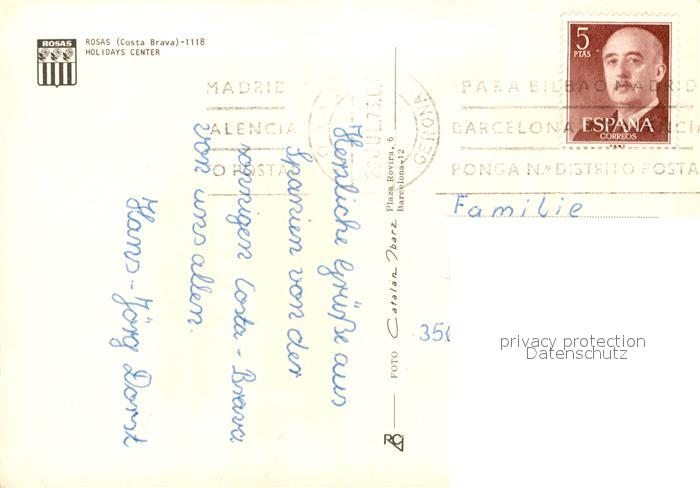 ROSAS
ROSAS (Costa Brava)-1118
HOLIDAYS CENTER
Herzliche Grüße aus
Spanien von der
sonnigen Costa-Brava
von uns allen.
Hans-Jörg Dorst
FOTO Catalan Ibarz Plaza Rovira, 6
Barcelona-12
MADRID
VALENCIA
TO POSTA
GERONA
PARA BILBAO MADRID
BARCELONA VALENCIA
PONGA N.º DISTRITO POSTA
5
PTAS
ESPAÑA
CORREOS
Familie
350
privacy protection
Datenschutz